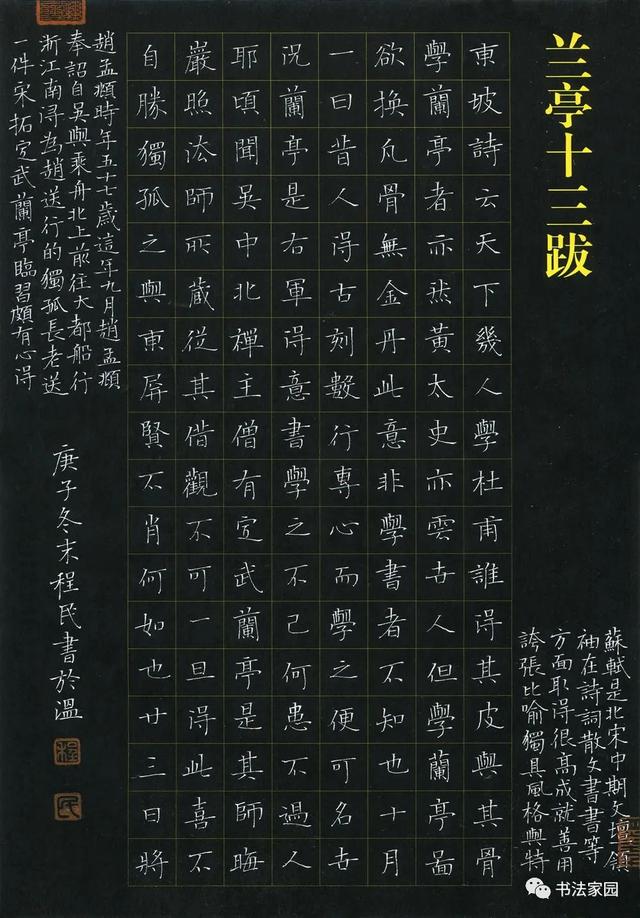 兰亭十三跋
蘇軾是北宋中期文壇領
袖在詩詞散文書書等
方面取得很高成就善用
誇張比喻獨具風格與特
東坡詩云天下幾人學杜甫誰得其皮與其骨
學蘭亭者亦然黃太史亦雲世人但學蘭亭面
欲換凡骨無金丹此意非學書者不知也十月
一日昔人得古刻數行專心而學之便可名世
況蘭亭是右軍得意書學之不已何患不過人
耶頃聞吳中北禪主僧有定武蘭亭是其師晦
嚴照法師所藏從其借觀不可一旦得此喜不
自勝獨孤之與東屏賢不肖何如也廿三日將
趙孟頫時年五十七歲這年九月趙孟頫
奉詔自吳興乘舟北上前往大都船行
浙江南浔為趙送行的獨孤長老送
一件宋拓定武蘭亭臨習頗有心得
庚子冬末程民書於溫
程
民
书法家园